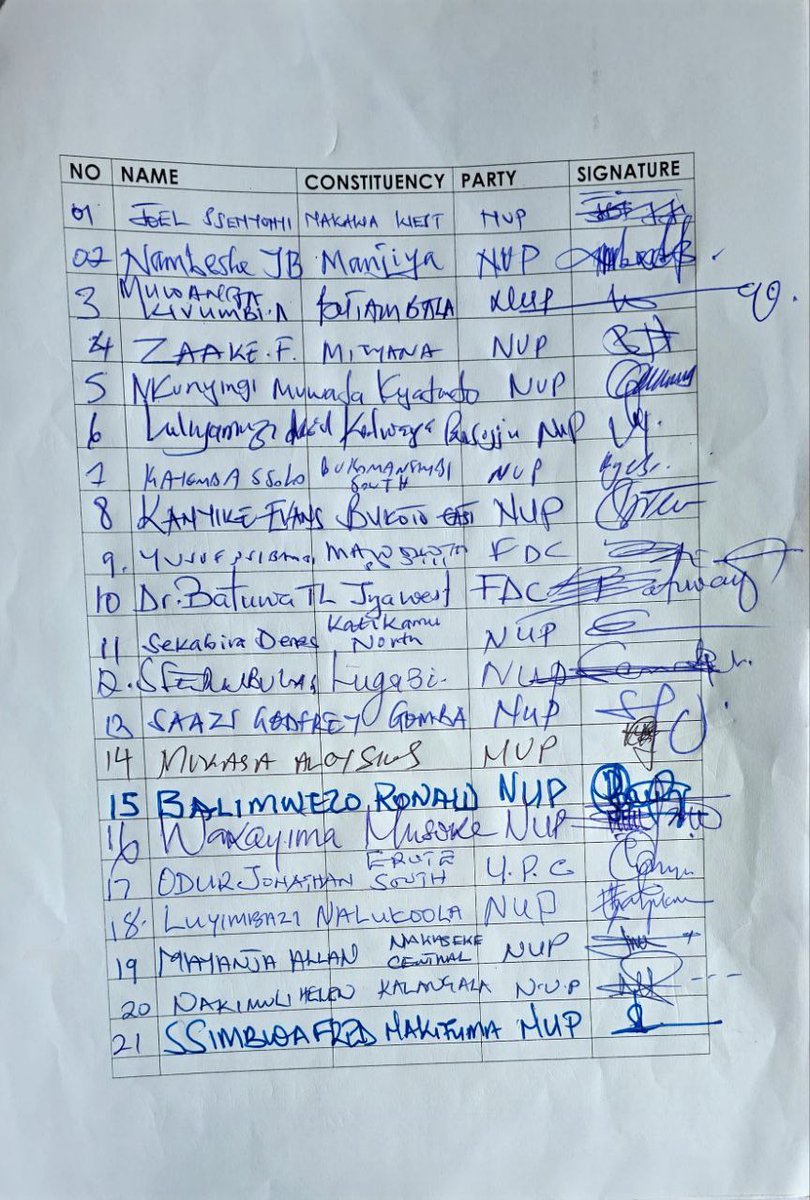 NO NAME CONSTITUENCY PARTY SIGNATURE
01 JOEL SSENYONYI NAKAWA WEST NUP
02 Nambeshe JB Manjiya NUP
3 MUWANGA KIVUMBI.A BUTAMBALA NUP
4 ZAAKE.F. MITYANA NUP
5 NKunyingi Muwada Kyadondo NUP
6 Lulyamuzi Kalwaga NUP
7 KATEMBA SSOLO BUKOMANSIMBI SOUTH NUP
8 KANYIKE EVANS BUKOTO EAST NUP
9. YUSUF FDC
10 Dr. Batuwa TL Jjawest FDC
11 Sekabira Denes Katikamu North NUP
12. Lugazi. NUP
13 SAAZI GODFREY GOMBA NUP
14 MUKASA ALOYSIUS NUP
15 BALIMWEZO RONALD NUP
16 Wakayima Musoke NUP
17 ODUR JONATHAN ERUTE SOUTH U.P.C
18. LUYIMBAZI NALUKOOLA NUP
19 MAYANJA ALLAN NAKASEKE CENTRAL NUP
20 NAKIMULI HELEN KALANGALA N.U.P
21 SSIMBWA FRED NAKIFUMA NUP